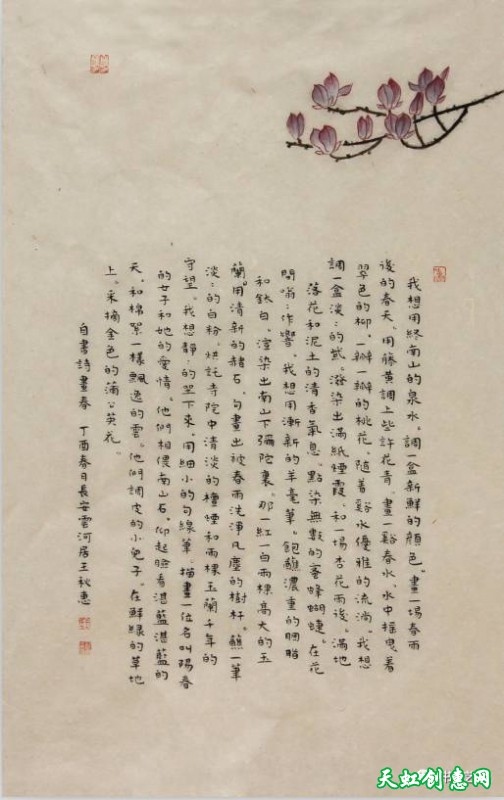 我想用終南山的泉水，調一盒新鮮的顏色。畫一場春雨
後的春天。用藤黃調上些許花青，畫一谿春水，水中摇曳着
翠色的柳，一瓣一瓣的桃花，隨着谿水優雅的流淌。我想
調一盒淡：的紫，潑染出滿紙煙霞，和一場杏花雨後，滿地
落花和泥土的清香氣息。點染無數的蜜蜂蝴蝶，在花
間嗡：作響。我想用漸新的羊毫筆，飽蘸濃重的胭脂
和鈦白，渲染出南山下彌陀裏，那一紅一白兩棵高大的玉
蘭。用清新的赭石，勾畫出被春雨洗淨凡塵的樹杆。蘸一筆
淡：的白粉，烘託寺院中清淡的檀煙和兩棵玉蘭千年的
守望。我想靜：的坐下來，用細小的勾線筆，描畫一位名叫陽春
的女子和她的愛情。他們相偎南山石，仰起臉看湛藍湛藍的
天，和棉絮一樣飄逸的雲。他們調皮的小兔子，在鮮綠的草地
上，采摘金色的蒲公英花。
自書詩畫春 丁酉春日長安雲河居王秋惠
天虹创惠网